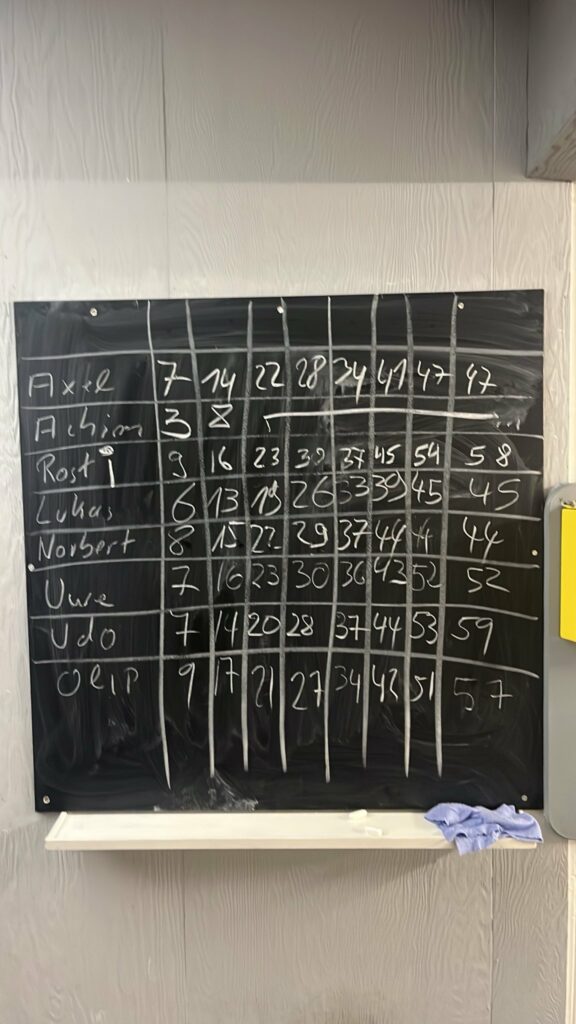 Axel 7 14 22 28 34 41 47 47
Achim 3 8
Rosti 9 16 23 30 37 45 54 58
Lukas 6 13 19 26 33 39 45 45
Norbert 8 15 22 29 37 44 44
Uwe 7 16 23 30 36 43 52 52
Udo 7 14 20 28 37 44 53 59
9 17 21 27 34 42 51 57